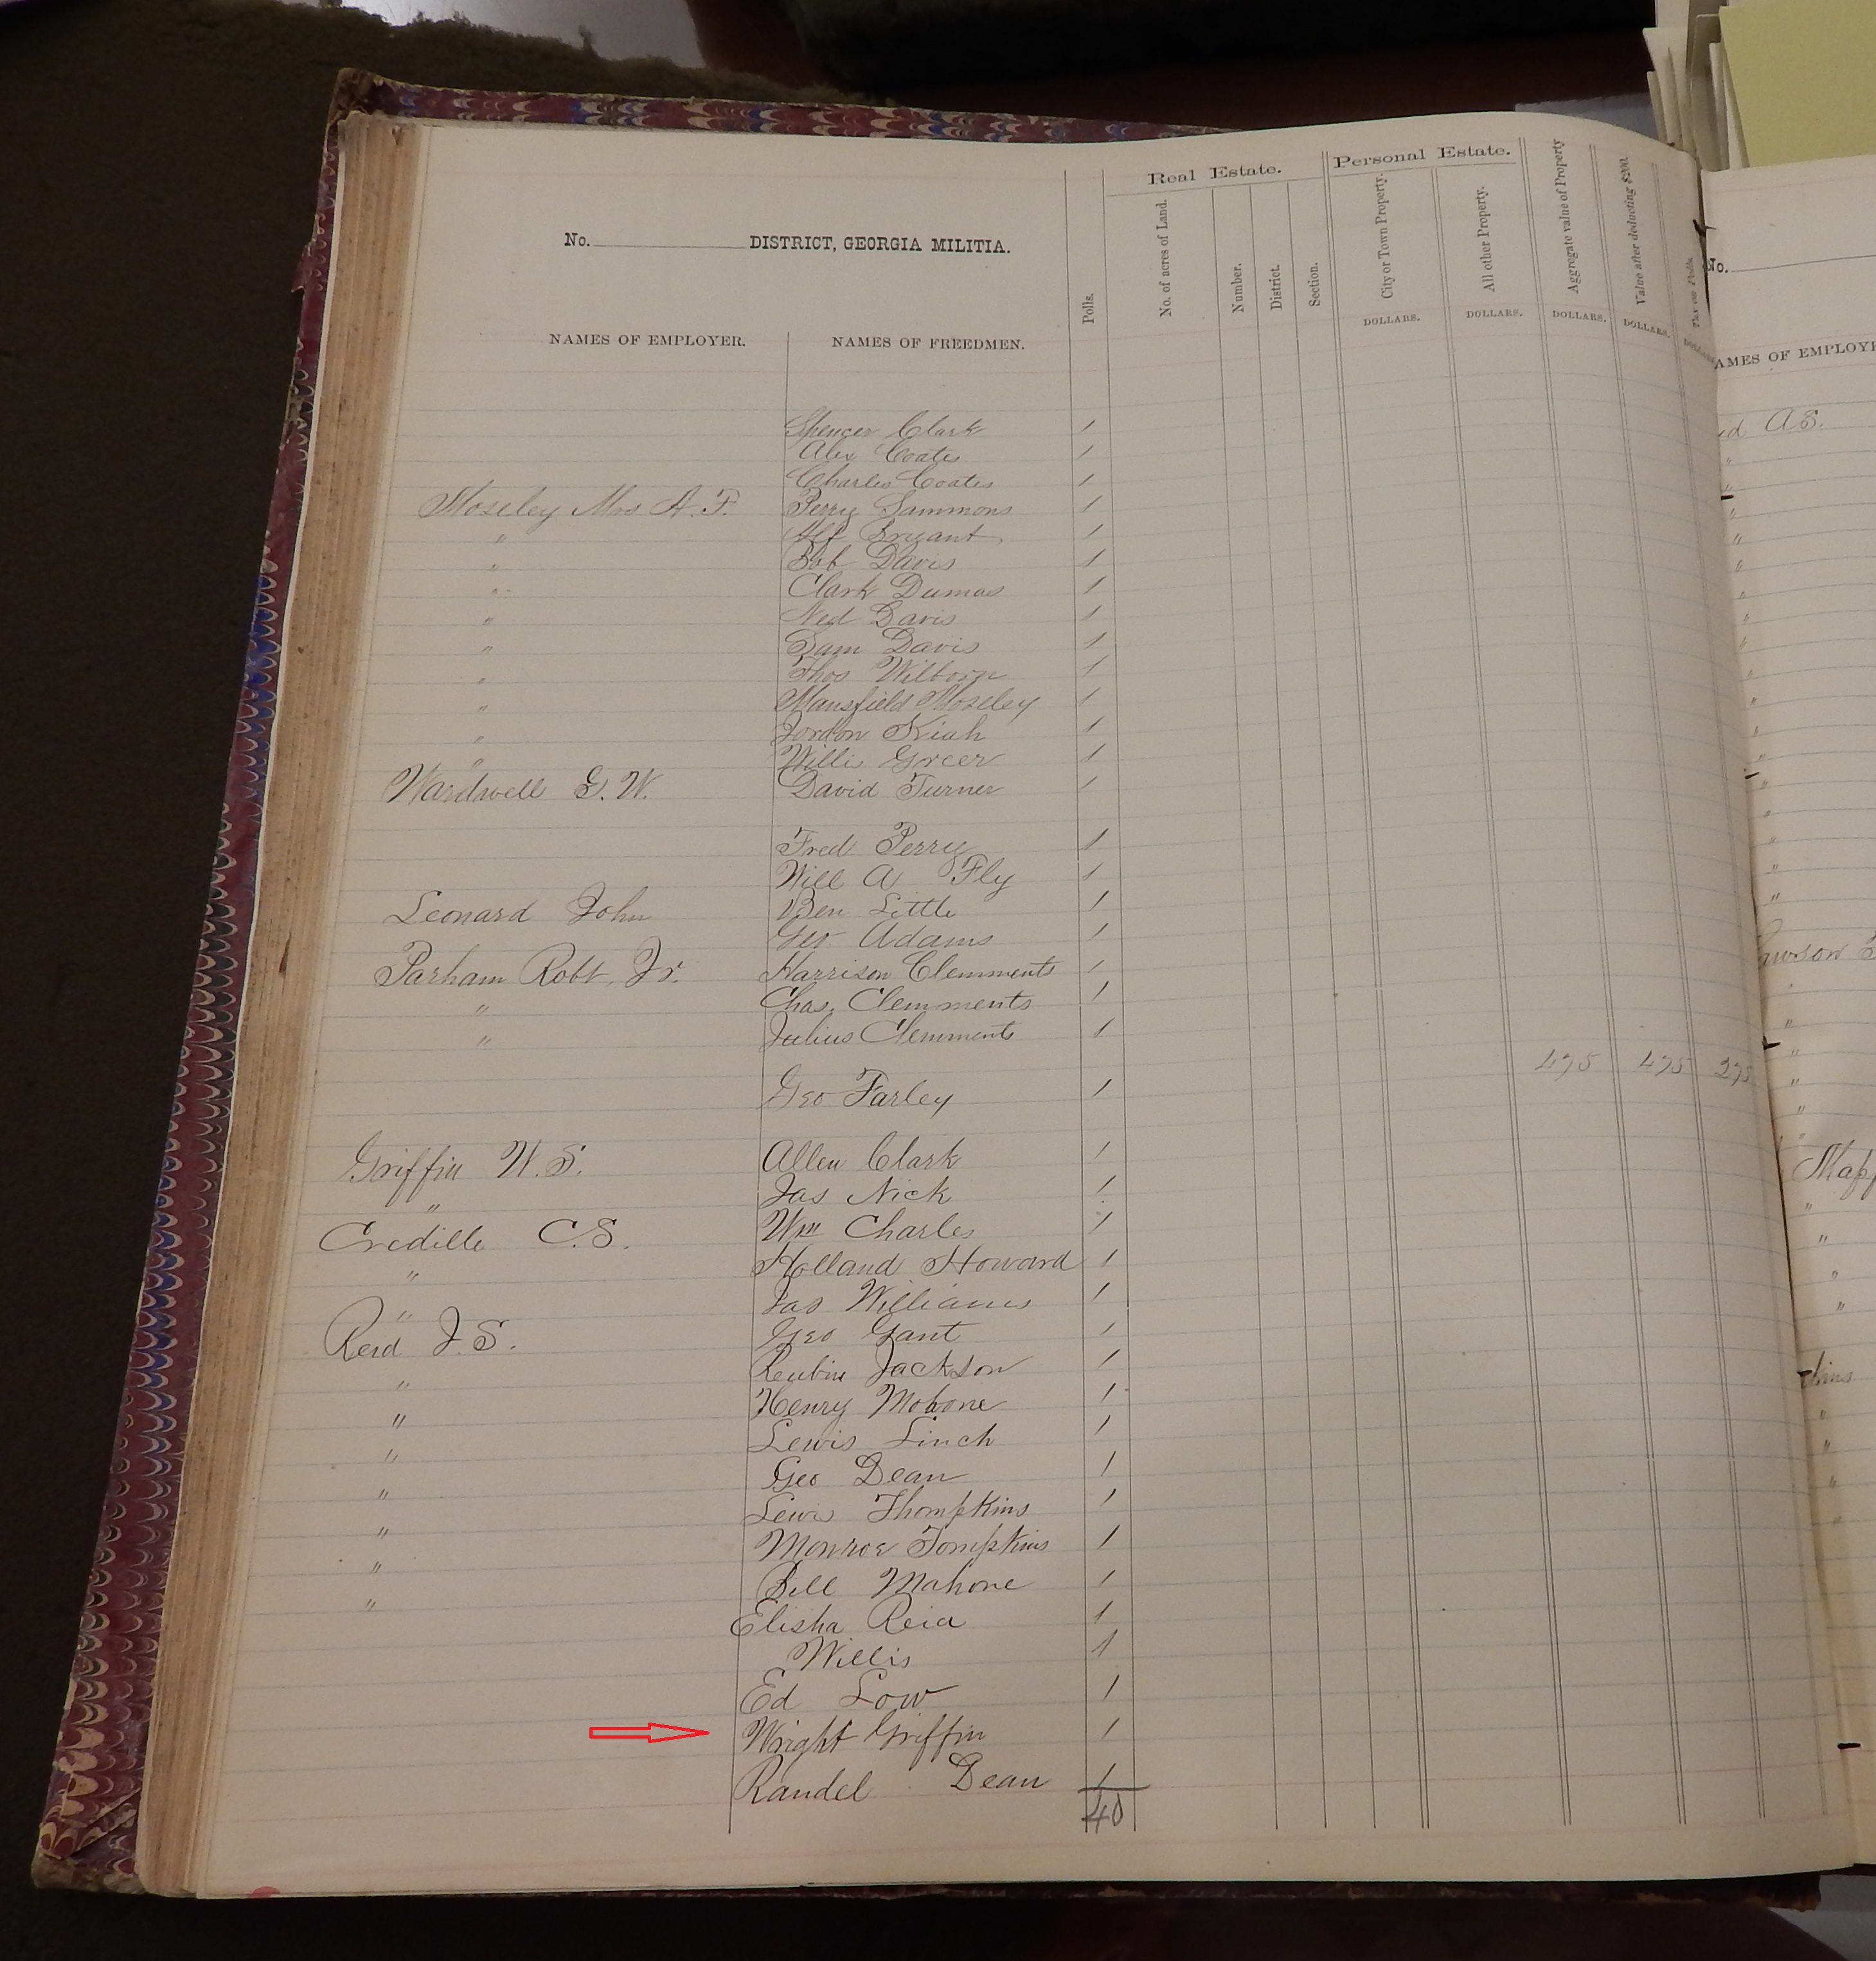 Real Estate. Personal Estate.
No. DISTRICT, GEORGIA MILITIA.
Polls. No. of acres of Land. Number. District. Section. City or Town Property. All other Property. Aggregate value of Property Value after deducting $200. Tax on Polls.
DOLLARS. DOLLARS. DOLLARS. DOLLARS.
NAMES OF EMPLOYER. NAMES OF FREEDMEN.
Spencer Clark 1
Alex Coates 1
Charles Coates 1
Moseley Mrs A. F. Perry Sammons 1
" Alf Bryant 1
" Bob Davis 1
" Clark Dumas 1
" Ned Davis 1
" Sam Davis 1
" Thos Wilborn 1
" Mansfield Moseley 1
" Jordon Kiah 1
" Willis Greer 1
Wardwell G. W. David Turner 1
Fred Perry 1
Will A Fly 1
Leonard John Ben Little 1
Geo Adams 1
Parham Robt. Jr. Harrison Clemments 1
" Chas. Clemments 1
" Julius Clemments 1
Geo Farley 1 475 475 275
Griffin W. S. Allen Clark 1
" Jas Nick 1
Credille C. S. Wm Charles 1
" Holland Howard 1
" Jas Williams 1
Reid J. S. Geo Gant 1
" Reubin Jackson 1
" Henry Mohone 1
" Lewis Linch 1
" Geo Dean 1
" Lewis Thompkins 1
" Monroe Tompkins 1
" Bill Mahone 1
Elisha Reid 1
Willis 1
Ed Low 1
Wright Griffin 1
Randel Dean 1
40
No.
AMES OF EMPLOY
A. S.
awson
Mapp
kins